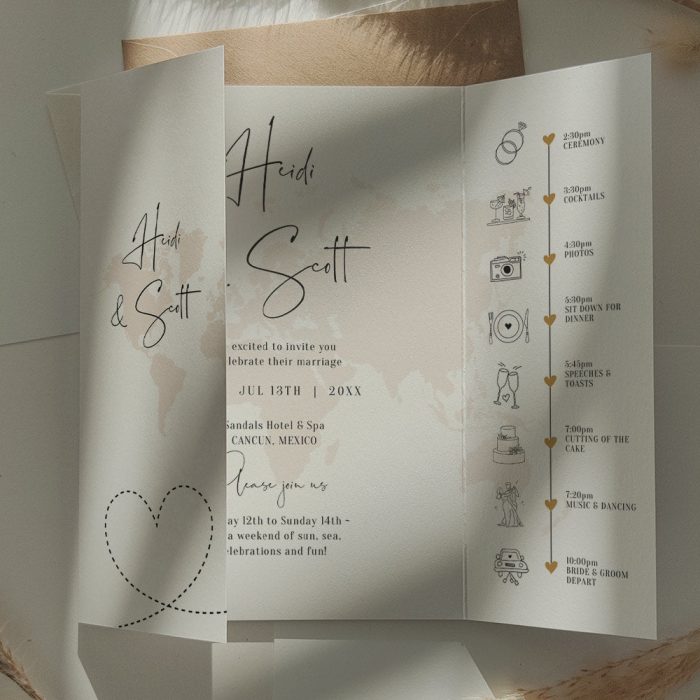 Heidi
& Scott
Heidi
Scott
excited to invite you
elebrate their marriage
JUL 13TH | 20XX
Sandals Hotel & Spa
CANCUN, MEXICO
Please join us
ay 12th to Sunday 14th -
a weekend of sun, sea,
elebrations and fun!
2:30pm
CEREMONY
3:30pm
COCKTAILS
4:30pm
PHOTOS
5:30pm
SIT DOWN FOR
DINNER
5:45pm
SPEECHES &
TOASTS
7:00pm
CUTTING OF THE
CAKE
7:20pm
MUSIC & DANCING
10:00pm
BRIDE & GROOM
DEPART